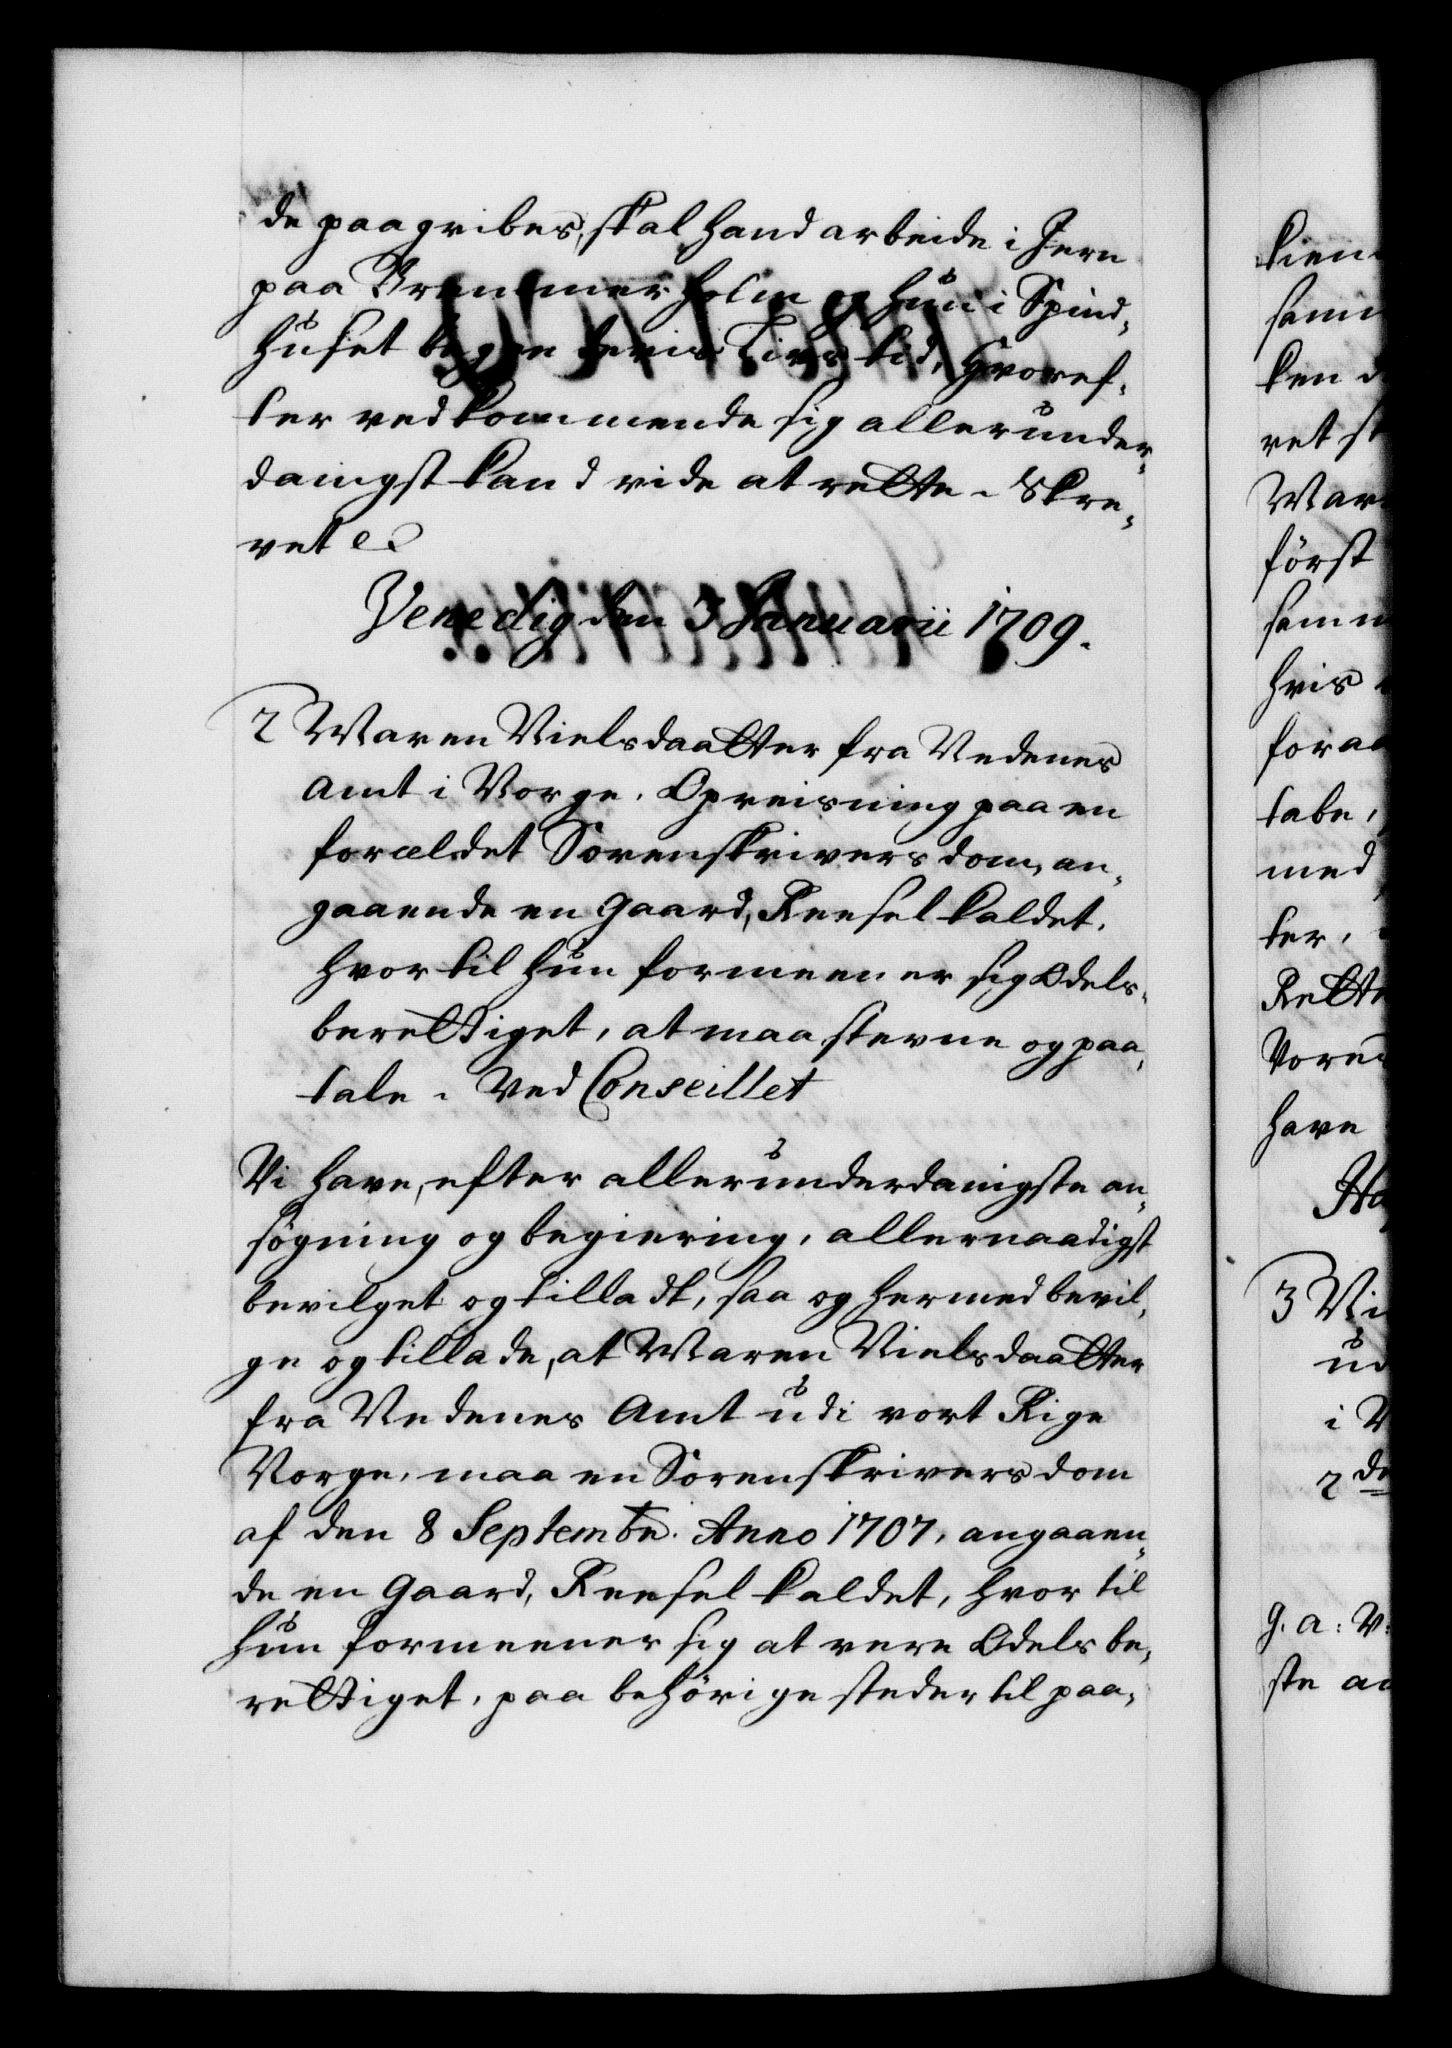 de paagribes, skal hand arbeide i Jern
paa Bremmerholm og hun i Spind¬
huset begge deris Livs tid, Hvoref¬
ter vedkommende sig allerunder¬
danigst kand vide at rette. Skre¬
vet
Venedig den 3 Januarii 1709.
2 Maren Nielsdaatter fra Nedenes
Amt i Norge. Opreisning paa en
forældet Sorenskrivers dom, an¬
gaaende en Gaard, Reesel kaldet,
hvortil hun formeener sig Odels¬
berettiget, at maa stevne og paa¬
tale. Ved Conseillet
Vi have, efter allerunderdanigste an¬
søgning og begiering, allernaadigst
bevilget og tilladt, saa og hermed bevil¬
ge og tillade, at Maren Nielsdaatter
fra Nedenes Amt udi vort Rige
Norge, maa en Sorenskrivers dom
af den 8 Septembr. Anno 1707, angaaen¬
de en Gaard, Reesel kaldet, hvortil
hun formeener sig at vere Odelsbe¬
rettiget, paa behørige steder til paa¬
ken d
ret st
først
hvis
foraa
tabe,
med
ter,
Rette
have
3 Vi
ud
i N
2 de
g. a: v:
ste an